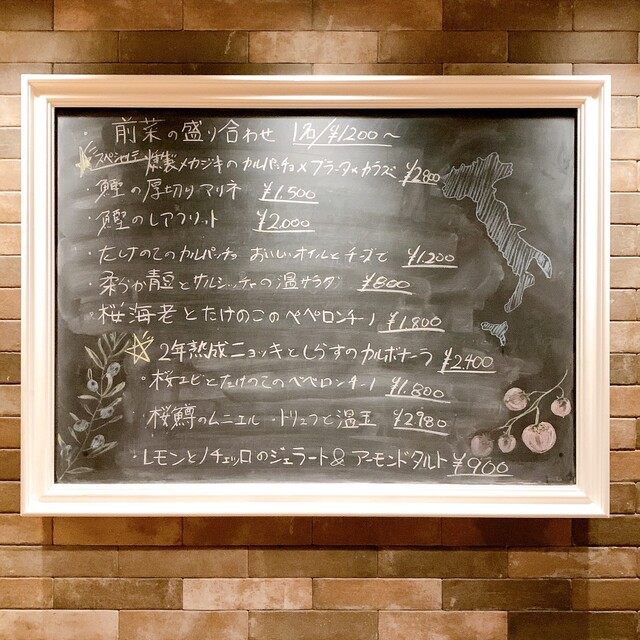 ・前菜の盛り合わせ 1名/¥1200〜
スペシャリテ 燻製メカジキのカルパッチョ×ブラータ×カラスミ ¥2800
・鰹の厚切りマリネ ¥1,500
・鰹のレアフリット ¥2,000
・たけのこのカルパッチョ おいしいオイルとチーズで ¥1,200
・柔らか青豆とサルシッチャの温サラダ ¥800
・桜海老とたけのこのペペロンチーノ ¥1,800
2年熟成ニョッキとしらすのカルボナーラ ¥2,400
・桜エビとたけのこのペペロンチーノ ¥1,800
・桜鱒のムニエル・トリュフと温玉 ¥2980
・レモンとノチェッロのジェラート&アーモンドタルト ¥900